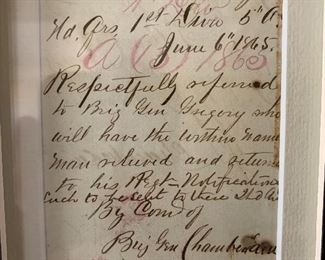 Hd. Qrs. 1st Div 5" A
June 6" 1865.
Respectfully referred
to Brig Gen Gregory who
will have the within named
man relieved and returned
to his Regt - Notification
such to be sent to these Hd Q
By Com'd of
Brig Gen Chamberlain